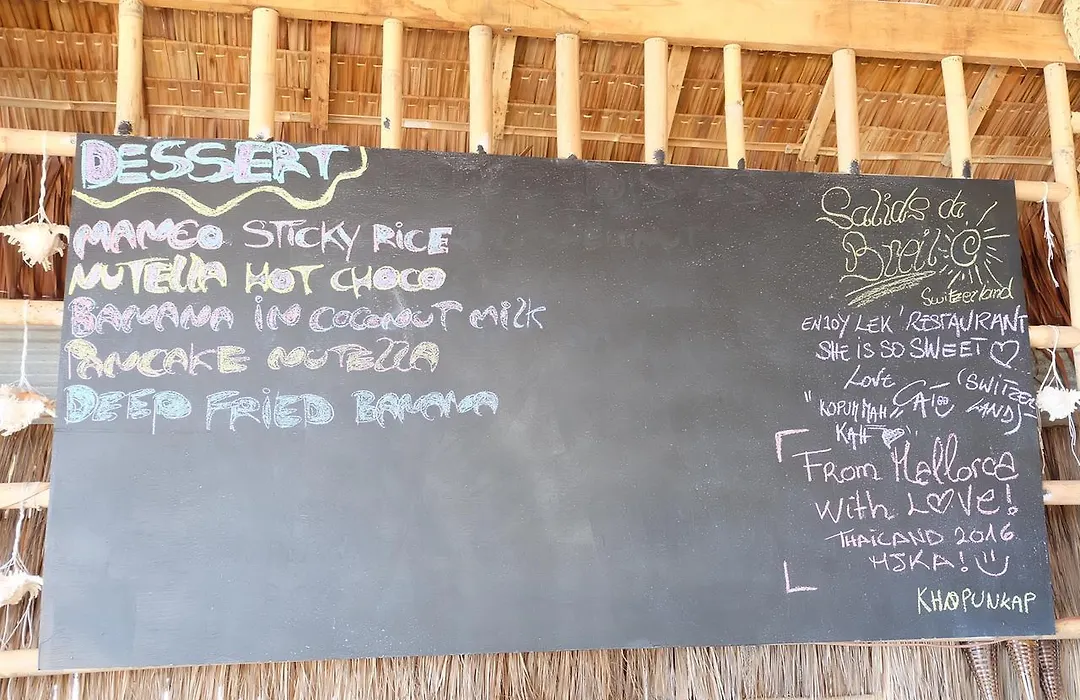 DESSERT
MANGO STICKY RICE
NUTELLA HOT CHOCO
BANANA IN COCONUT MILK
PANCAKE NUTELLA
DEEP FRIED BANANA
Salids da
Breil
Switzerland
ENJOY LEK' RESTAURANT
SHE IS SO SWEET ♡
LOVE
(SWITZER
"KOPUN MAH"
LAND)
KAH
From Mallorca
with L♡Ve!
THAILAND 2016
KHOPUNKAP